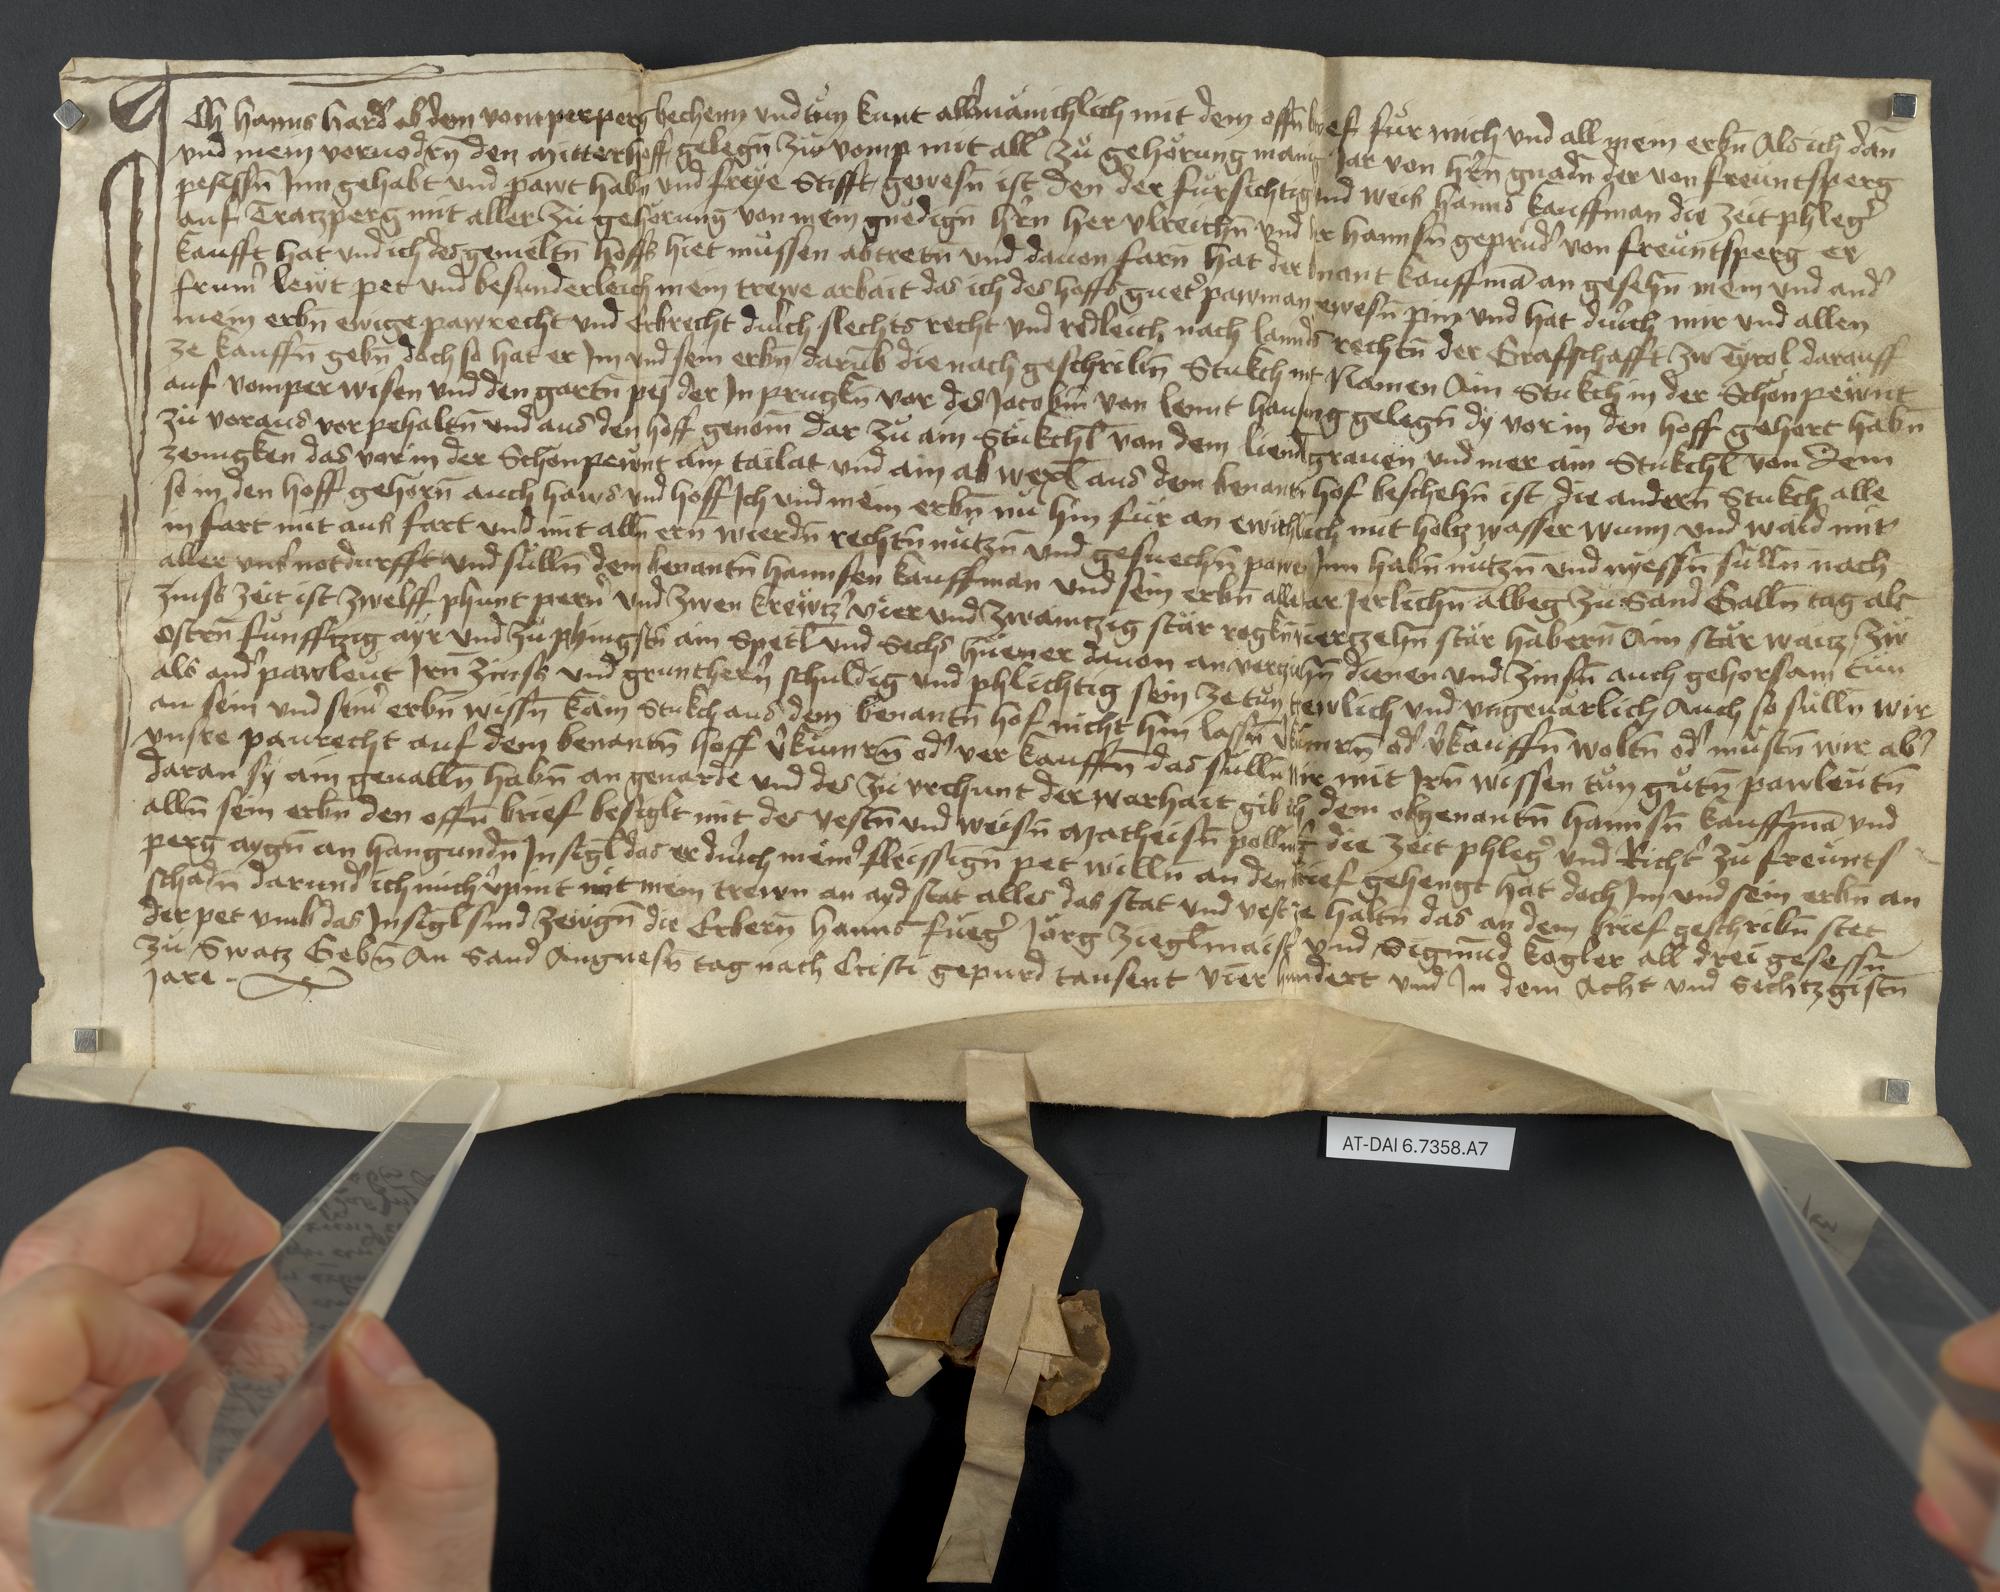 Ich hanns hard ob dem vomperperg bechenn vnd tůn kunt allermänichlich mit dem offn̄ brief für mich vnd all mein erbn̄ Als ich dan̄
vnd mein voruodrn̄ den Mitterhoff gelegn̄ zů vomp mit all' zů gehörung manig Jar von hrn̄ gnadn̄ der von freuntsperg
pesessn̄ Inn gehabt vnd pawt habn̄ vnd freye Stifft gewesn̄ ist den der fürsichtig vnd weis hanns kauffman die zeit phleger
auf Tratzperg mit aller zů gehörung von mein gnedign̄ hrn̄ her vlreichn̄ vnd her hannsn̄ geprüd' von freuntsperg er
kaufft hat vnd ich des gemeltn̄ hoffs hiet müssen abtretn̄ vnd dauon farn̄ hat der benant kauffma͞ an gesehn̄ mein vnd and'
frum' lewt pet vnd besunderleich mein trewe arbait das ich des hoffs guet' pawman gewesn̄ pin vnd hat durch mir vnd allen
mein erbn̄ ewige pawrecht vnd Erbrecht durch slechts recht vnd redleich nach lannds rechtn̄ der Grafschafft zw Tyrol darauff
ze kauffn̄ gebn̄ doch so hat er Im vnd sein erbn̄ darūb die nach geschribn̄ Stukch mit Namen Ain Stukch in der Schonpewnt
auf vomper wisen vnd den gartn̄ pej der Inprugkn̄ vor des Jacobm̄ von lennt hausung gelegn̄ dy vor in den hoff gehort habn̄
zů voraus vor pehaltn̄ vnd aus den hoff genom̄ dar zů ain Stükchl von dem liendgrauen vnd mer ain Stukchl von dem
zenugken das vor in der Schonpewnt ain tailat vnd ain ab wexl aus dem benantn̄ hof beschehn̄ ist die andern̄ Stukch alle
so in den hoff gehorn̄ auch haws vnd hoff Ich vnd mein erbn̄ nu hin für an ewichleich mit holtz wasser wunn vnd waid mit
in fart mit aus fart vnd mit alln̄ ern̄ wierdn̄ rechtn̄ nützn̄ vnd gesuechn̄ pawen Inn habn̄ nützn̄ vnd nyessn̄ sulln̄ nach
aller vnser notdurfft vnd sulln̄ dem benantn̄ hannsen kauffman vnd sein erbn̄ alle Jar Jerlichn̄ albeg zů Sand Galln̄ tag als
zinss zeit ist zwelff phunt pern' vnd zwen krewtz' vier vnd zwaintzig stär rogkn̄ viertzehn̄ stär habern̄ Ain stär waitz zw
ostern̄ funfftzig ayr vnd zu phingstn̄ ain Spetl vnd Sechs huener dauon an verziehn̄ dienen vnd zinsn̄ auch gehorsam tun
als and' pawleut Irn̄ zinss vnd gruntherrn̄ schuldig vnd phlichtig sein ze tun trewlich vnd vngeuärlich Auch so sulln̄ wir
an sein vnd sein' erbn̄ wissn̄ kain Stukch aus dem benantn̄ hof nicht hin lassn̄ v'kumrn̄ od' v'kauffn̄ woltn̄ od' müstn̄ wir ab'
vnsre paurecht auf dem benantn̄ hoff v'kumrn̄ od' ver kauffn̄ das sulln̄ wir mit Irn̄ wissen tun gutn̄ pawleutn̄
daran sy ain geualln̄ habn̄ an geuarde vnd des zu vrchunt der warhait gib ich dem obgenantn̄ hannsn̄ kauffma͞ vnd
alln̄ sein erbn̄ den offn̄ brief besiglt mit des vestn̄ vnd weisn̄ Matheisn̄ polling die zeit phleg' vnd Richt' zu freunts
perg aygn̄ an hangundn̄ Insigl das er durch mein' fleissign̄ pet willn̄ an den brief gehengt hat doch Im vnd sein erbn̄ an
schadn̄ darund' ich mich v'pint mit mein trewn an ayd stat alles das stat vnd vest ze haltn̄ das an dem brief geschribn̄ stet
der pet vmb das Insigl sind zewgn̄ die Erbern̄ hanns Fueg' Jörg zieglmaist' vnd Sigmūd kogler all drei gesessn̄
zu Swatz Gebn̄ An Sand Angnesn̄ tag nach Cristi gepurd tausent vier hundert vnd In dem Acht vnd Sechtzgistn̄
Jare
AT-DAI 6.7358.A7